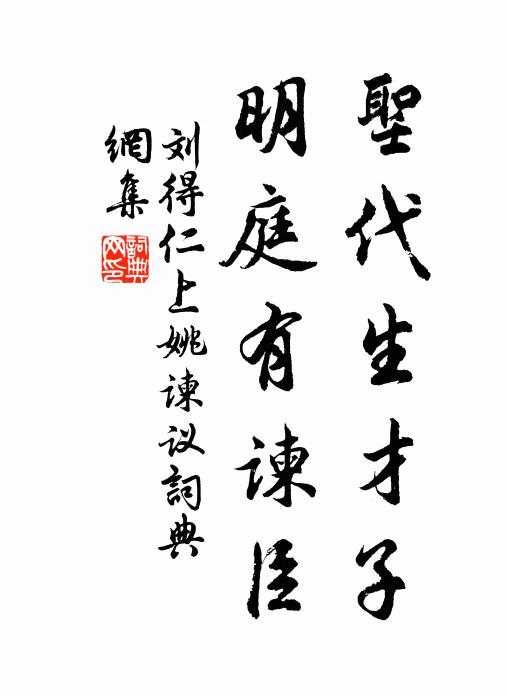 聖代生才子
明庭有諫臣
刘得仁上姚谏议詞典
網集
詞典网印